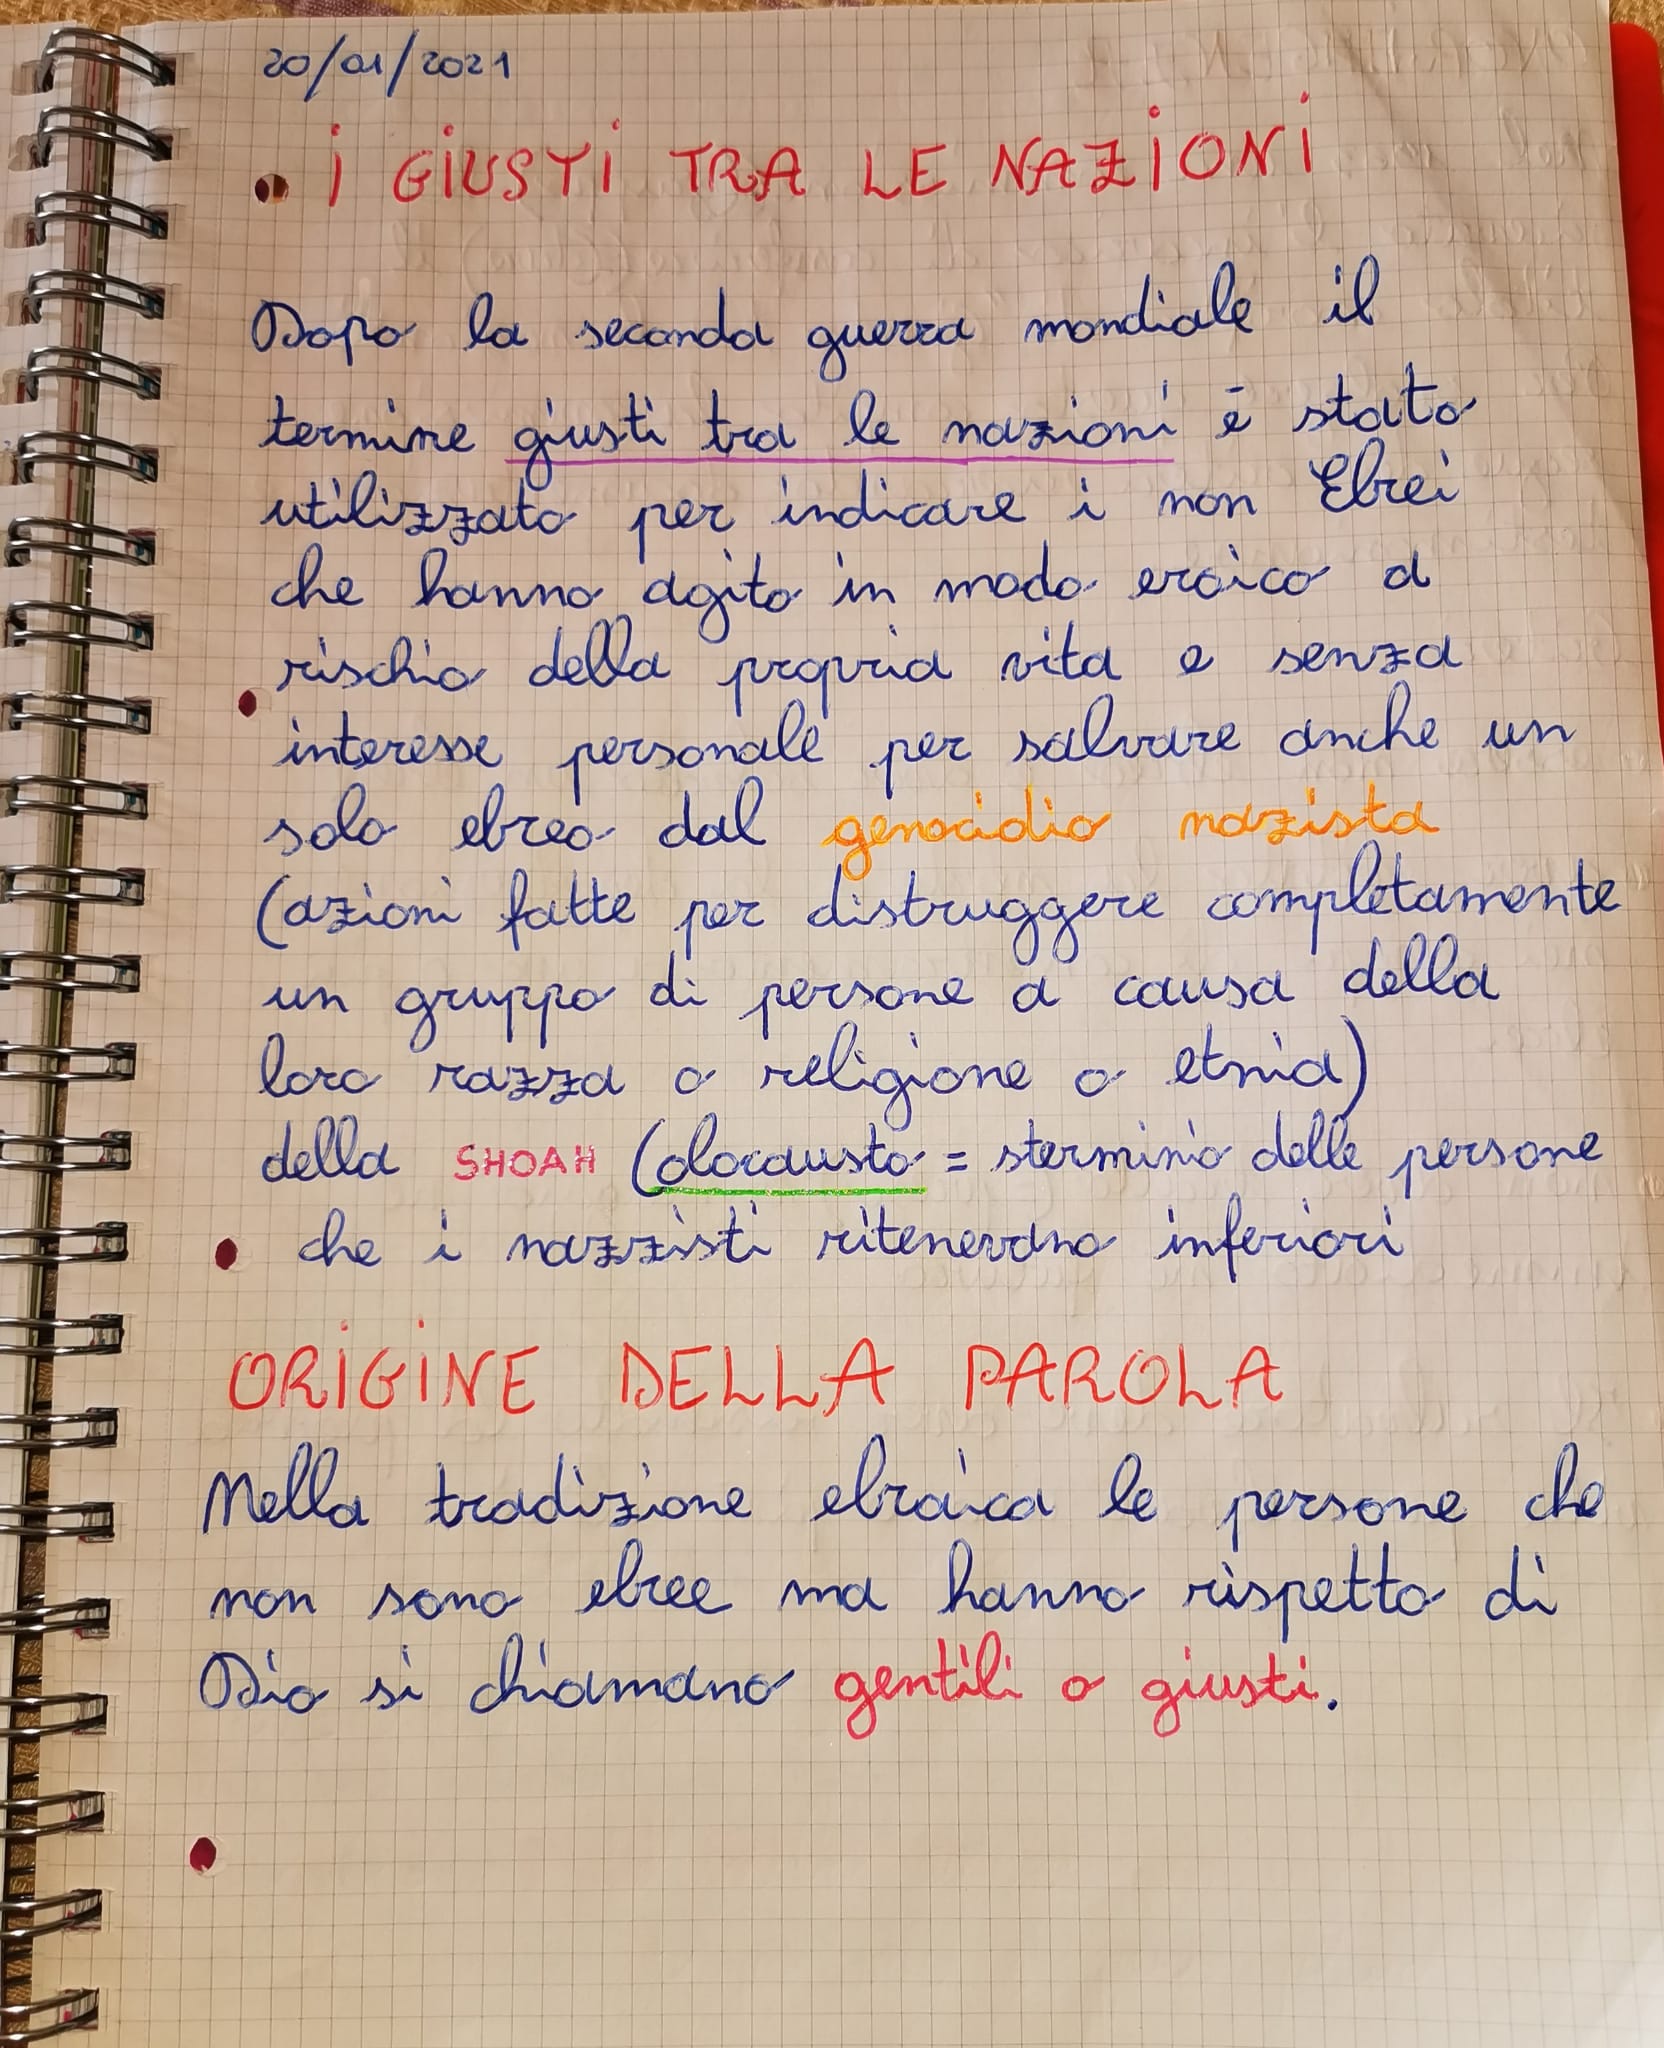 20/01/2021
I GIUSTI TRA LE NAZIONI
Dopo la seconda guerra mondiale il
termine giusti tra le nazioni è stato
utilizzato per indicare i non Ebrei
che hanno agito in modo eroico a
rischio della propria vita e senza
interesse personale per salvare anche un
solo ebreo dal genocidio nazista
(azioni fatte per distruggere completamente
un gruppo di persone a causa della
loro razza o religione o etnia)
della SHOAH (olocausto = sterminio delle persone
che i nazzisti ritenevano inferiori
ORIGINE DELLA PAROLA
Nella tradizione ebraica le persone che
non sono ebree ma hanno rispetto di
Dio si chiamano gentili o giusti.